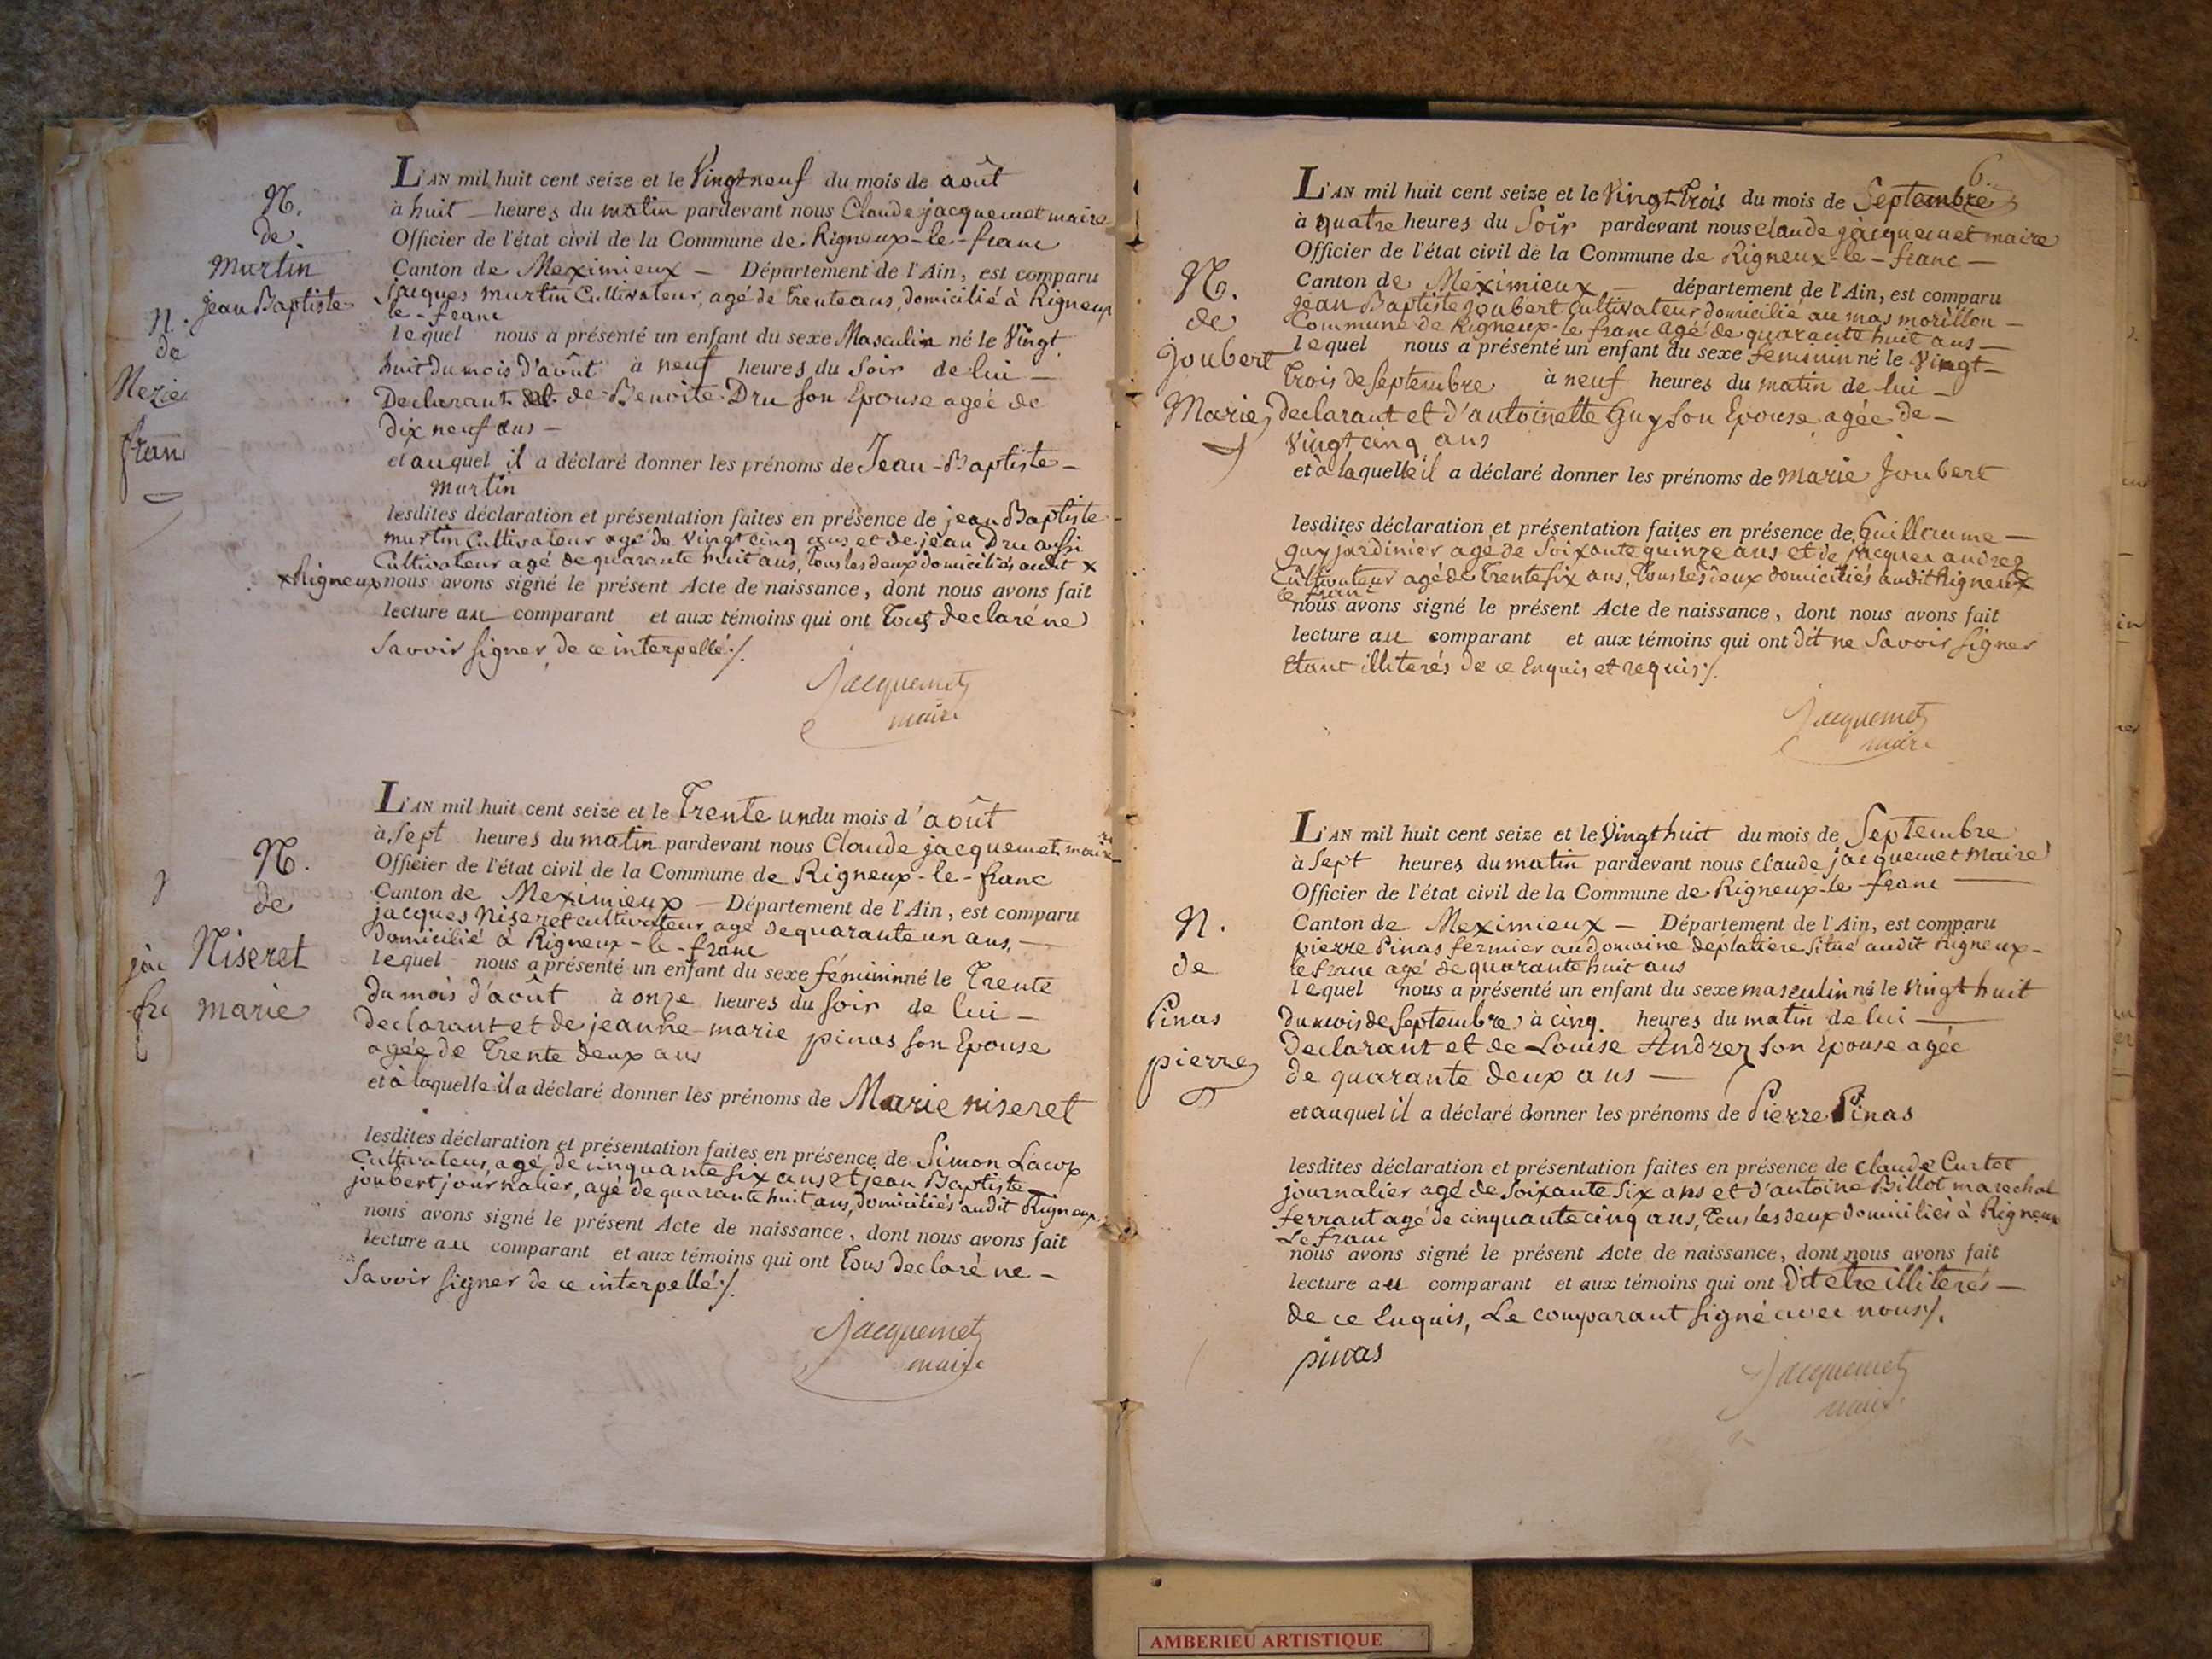 N.
de
Murtin
jean Baptiste
N.
de
Mezie
fran
L'AN mil huit cent seize et le Vingt neuf du mois de août
à huit heures du matin pardevant nous Claude jacquemet maire
Officier de l'état civil de la Commune de Rigneux-le-franc
Canton de Meximieux — Département de l'Ain, est comparu
jacques murtin Cultivateur, agé de trente ans, domicilié à Rigneux
le-franc
lequel nous a présenté un enfant du sexe Masculin né le Vingt
huit du mois d'août à neuf heures du Soir de lui —
Declarant et de Benoite Dru son Epouse agée de
dix neuf ans —
et auquel il a déclaré donner les prénoms de Jean-Baptiste —
murtin
lesdites déclaration et présentation faites en présence de jean Baptiste
murtin Cultivateur agé de vingt cinq ans et de jean Dru aussi
Cultivateur agé de quarante huit ans, tous les deux domiciliés audit x
x Rigneux nous avons signé le présent Acte de naissance, dont nous avons fait
lecture au comparant et aux témoins qui ont tous declaré ne
Savoir signer de ce interpellé ./.
Jacquemet
maire
N.
de
Niseret
marie
jac
L'AN mil huit cent seize et le Trente un du mois d'août
à Sept heures du matin pardevant nous Claude jacquemet maire
Officier de l'état civil de la Commune de Rigneux-le-franc
Canton de Meximieux — Département de l'Ain, est comparu
jacques Niseret cultivateur agé de quarante un ans, —
domicilié à Rigneux-le-franc
lequel nous a présenté un enfant du sexe féminin né le Trente
du mois d'août à onze heures du soir de lui —
declarant et de jeanne-marie pinas son Epouse
agée de trente deux ans
et à laquelle il a déclaré donner les prénoms de Marie niseret
lesdites déclaration et présentation faites en présence de Simon Lacop
Cultivateur, agé de cinquante six ans et jean Baptiste —
joubert journalier, agé de quarante huit ans, domiciliés audit Rigneux
nous avons signé le présent Acte de naissance, dont nous avons fait
lecture au comparant et aux témoins qui ont tous declaré ne —
Savoir signer de ce interpellé ./.
Jacquemet
maire
6.
N.
de
joubert
Marie
L'AN mil huit cent seize et le Vingt trois du mois de Septembre
à quatre heures du Soir pardevant nous claude jacquemet maire
Officier de l'état civil de la Commune de Rigneux-le-franc —
Canton de Meximieux — département de l'Ain, est comparu
jean Baptiste joubert cultivateur domicilié au mas morillon —
Commune de Rigneux-le franc agé de quarante huit ans —
lequel nous a présenté un enfant du sexe feminin né le Vingt —
trois de septembre à neuf heures du matin de lui —
declarant et d'antoinette Guy son Epouse agée de —
Vingt cinq ans
et à laquelle il a déclaré donner les prénoms de marie Joubert
lesdites déclaration et présentation faites en présence de Guillaume —
guy jardinier agé de Soixante quinze ans et de jacques andrez
Cultivateur agé de trente six ans, tous les deux domiciliés audit Rigneux
le franc
nous avons signé le présent Acte de naissance, dont nous avons fait
lecture au comparant et aux témoins qui ont dit ne Savoir signer
Etant illiterés de ce Enquis et requis ./.
Jacquemet
maire
N.
de
Pinas
pierre
L'AN mil huit cent seize et le Vingt huit du mois de Septembre
à Sept heures du matin pardevant nous claude jacquemet Maire
Officier de l'état civil de la Commune de Rigneux-le-franc —
Canton de Meximieux — Département de l'Ain, est comparu
pierre Pinas fermier au domaine deplatiere situé audit Rigneux-
le franc agé de quarante huit ans
lequel nous a présenté un enfant du sexe masculin né le Vingt huit
du mois de septembre à cinq heures du matin de lui —
declarant et de Louise Andrez son Epouse agée
de quarante deux ans —
et auquel il a déclaré donner les prénoms de Pierre Pinas
lesdites déclaration et présentation faites en présence de claude Curtet
journalier agé de Soixante Six ans et d'antoine Billot marechal
ferrant agé de cinquante cinq ans, tous les deux domiciliés à Rigneux
Le franc
nous avons signé le présent Acte de naissance, dont nous avons fait
lecture au comparant et aux témoins qui ont dit etre illiterés —
de ce Enquis, Le comparant signé avec nous ./.
pinas
Jacquemet
maire
AMBERIEU ARTISTIQUE